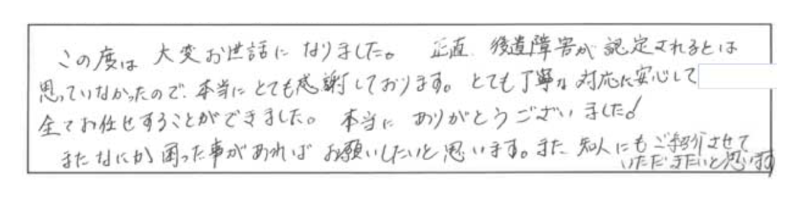 この度は 大変お世話に なりました。 正直 後遺障害が 認定されるとは
思っていなかったので、本当に とても感謝しております。とても丁寧な 対応に安心して
全てお任せすることができました。 本当に ありがとうございました!
またなにか 困った事があれば お願いしたいと思います。また 知人にもご紹介させて
いただきたいと思います